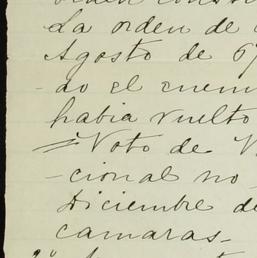 orden cons
La orden de
Agosto de 6
- do el enem
habia vuelto
= Voto de V
- cional no -
Diciembre de
camaras -